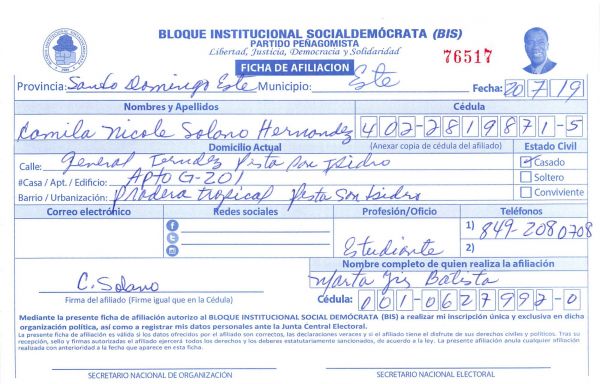 BLOQUE INSTITUCIONAL SOCIALDEMÓCRATA (BIS)
PARTIDO PEÑAGOMISTA
Libertad, Justicia, Democracia y Solidaridad
76517
FICHA DE AFILIACION
Provincia: Santo Domingo Este Municipio: Este Fecha: 20/7/19
Nombres y Apellidos Cédula
Camila Nicole Solano Hernandez 402-2819871-5
Domicilio Actual (Anexar copia de cédula del afiliado) Estado Civil
Calle: General Pista San Isidro Casado
#Casa / Apt. / Edificio: APTO G-201 Soltero
Barrio / Urbanización: Pradera tropical Pista San Isidro Conviviente
Correo electrónico Redes sociales Profesión/Oficio Teléfonos
1) 849-2080708
Estudiante 2)
Nombre completo de quien realiza la afiliación
C. Solano Marta Batista
Firma del afiliado (Firme igual que en la Cédula) Cédula: 001-0627992-0
Mediante la presente ficha de afiliación autorizo al BLOQUE INSTITUCIONAL SOCIAL DEMÓCRATA (BIS) a realizar mi inscripción única y exclusiva en dicha
organización política, así como a registrar mis datos personales ante la Junta Central Electoral.
La presente ficha de afiliación es válida si los datos ofrecidos por el afiliado son correctos, las declaraciones veraces y si el afiliado tiene el disfrute de sus derechos civiles y políticos. Tras su
recepción, sello y firmas autorizadas el afiliado ejercerá todos los derechos y los deberes estatutariamente sancionados, de acuerdo a la ley. La presente afiliación anula cualquier afiliación
realizada con anterioridad a la fecha que aparece en esta ficha.
SECRETARIO NACIONAL DE ORGANIZACIÓN SECRETARIO NACIONAL ELECTORAL